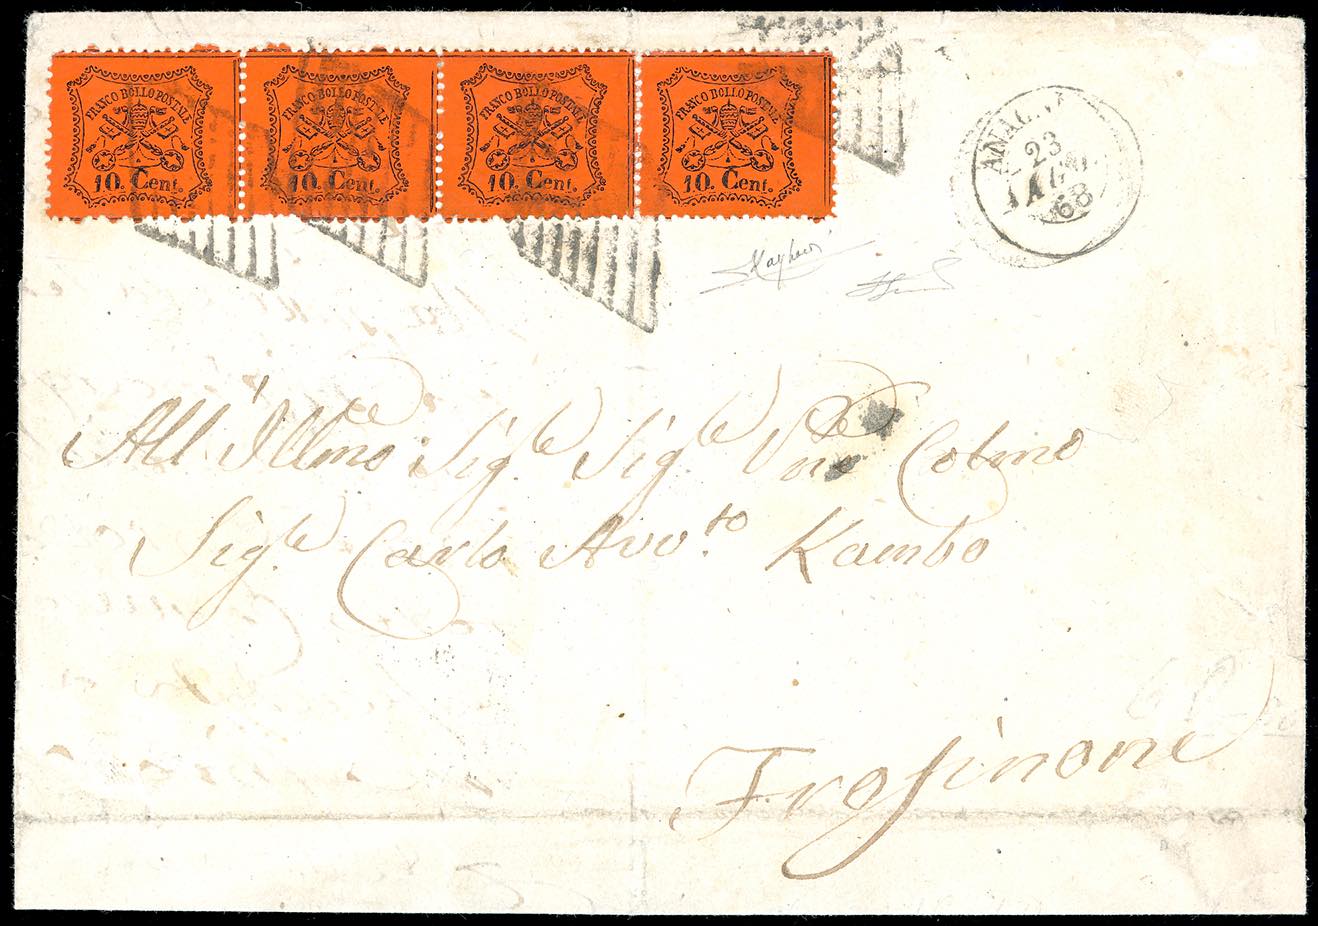 FRANCO BOLLO POSTALE
10. Cent.
FRANCO BOLLO POSTALE
10. Cent.
FRANCO BOLLO POSTALE
10. Cent.
FRANCO BOLLO POSTALE
10. Cent.
ANAGNI
23
68
All'Illmo Sigre Sigre Pne Colmo
Sigre Carlo Avvto Kambo
Frosinone